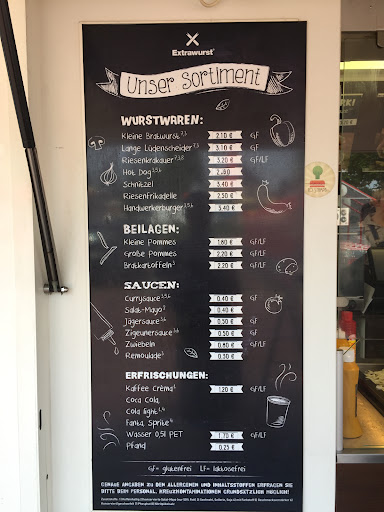 Extrawurst
Unser Sortiment
WURSTWAREN:
Kleine Bratwurst 2.10 € GF
Lange Lüdenscheider 3.10 € GF
Riesenkrakauer 3.20 € GF/LF
Hot Dog
Schnitzel 3.40 €
Riesenfrikadelle 2.50 €
Handwerkerburger 3.40 €
BEILAGEN:
Kleine Pommes 1.80 € GF/LF
Große Pommes 2.20 € GF/LF
Bratkartoffeln 2.20 € GF/LF
SAUCEN:
Currysauce 0.40 € GF
Salat-Mayo 0.40 €
Jägersauce 0.50 € GF
Zigeunersauce 0.50 € GF
Zwiebeln 0.80 € GF/LF
Remoulade 0.30 €
ERFRISCHUNGEN:
Kaffee Crema 1.20 € GF/LF
Coca Cola,
Cola light,
Fanta, Sprite
Wasser 0,5l PET 1.70 €
Pfand 0.25 €
GF= glutenfrei LF= laktosefrei
GENAUE ANGABEN ZU DEN ALLERGENEN UND INHALTSSTOFFEN ERFRAGEN SIE
BITTE DEM PERSONAL. KREUZKONTAMINATIONEN GRUNDSÄTZLICH MÖGLICH!